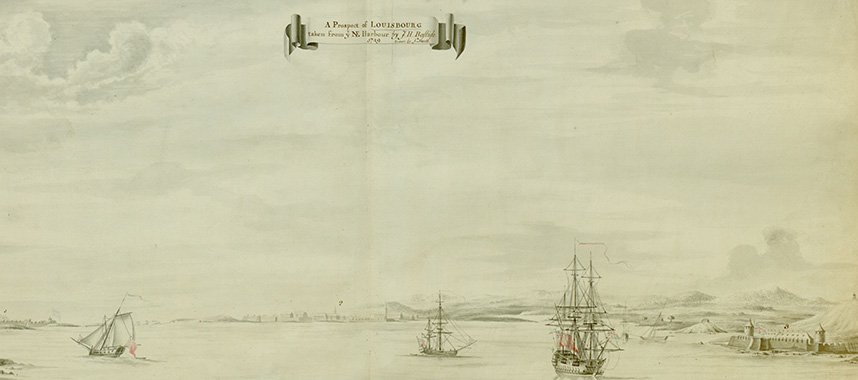 A Prospect of LOUISBOURG
taken from yͤ NE Harbour by J. H. Bastide
1749